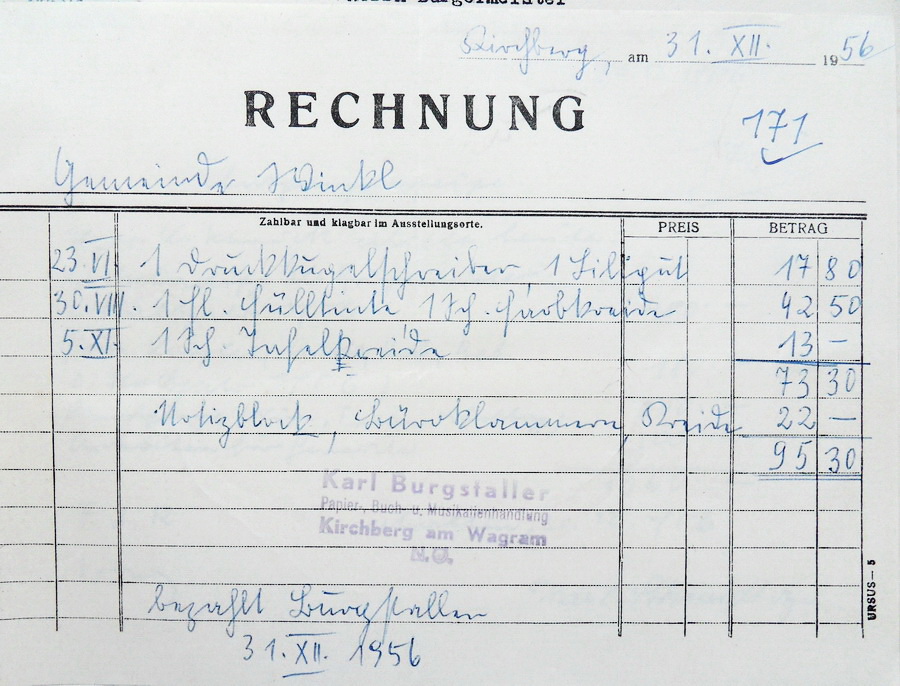 Bürgermeister
Kirchberg, am 31. XII. 1956
RECHNUNG
171
Gemeinde Winkl
Zahlbar und klagbar im Ausstellungsorte. PREIS BETRAG
23. VI 1 Druckkugelschreiber, 1 17 80
30. VIII. 1 Fl. Fülltinte 1 Sch. Farbkreide 42 50
5. XI. 1 Sch. Tafelkreide 13 —
73 30
Notizblock, Büroklammern, Kreide 22 —
95 30
Karl Burgstaller
Papier-, Buch- u. Musikalienhandlung
Kirchberg am Wagram
N.Ö.
URSUS — 5
bezahlt Burgstaller
31. XII. 1956